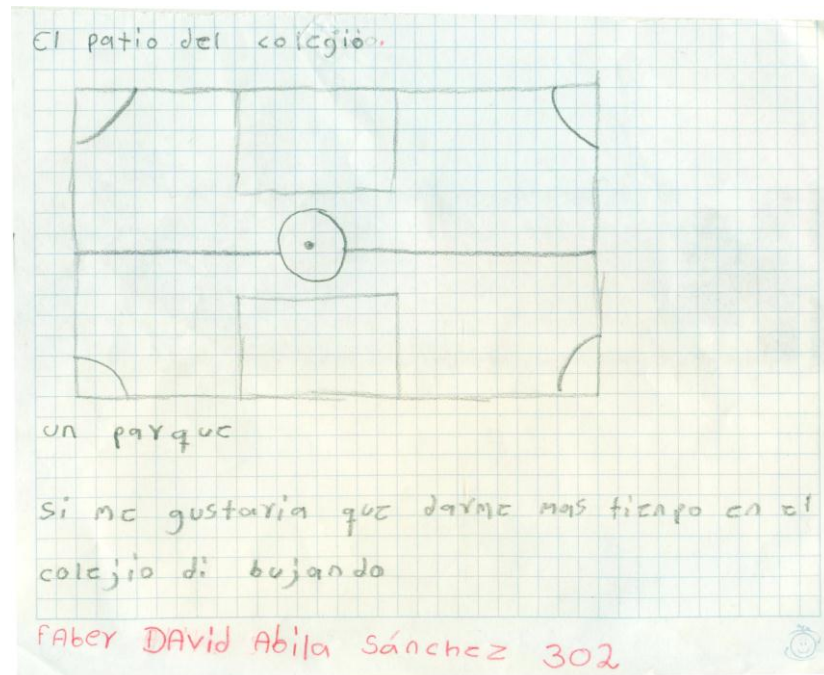 El patio del colegio.
un parque
si me gustaria que darme mas tienpo en el
colejio di bujando
FAber DAvid Abila Sánchez 302